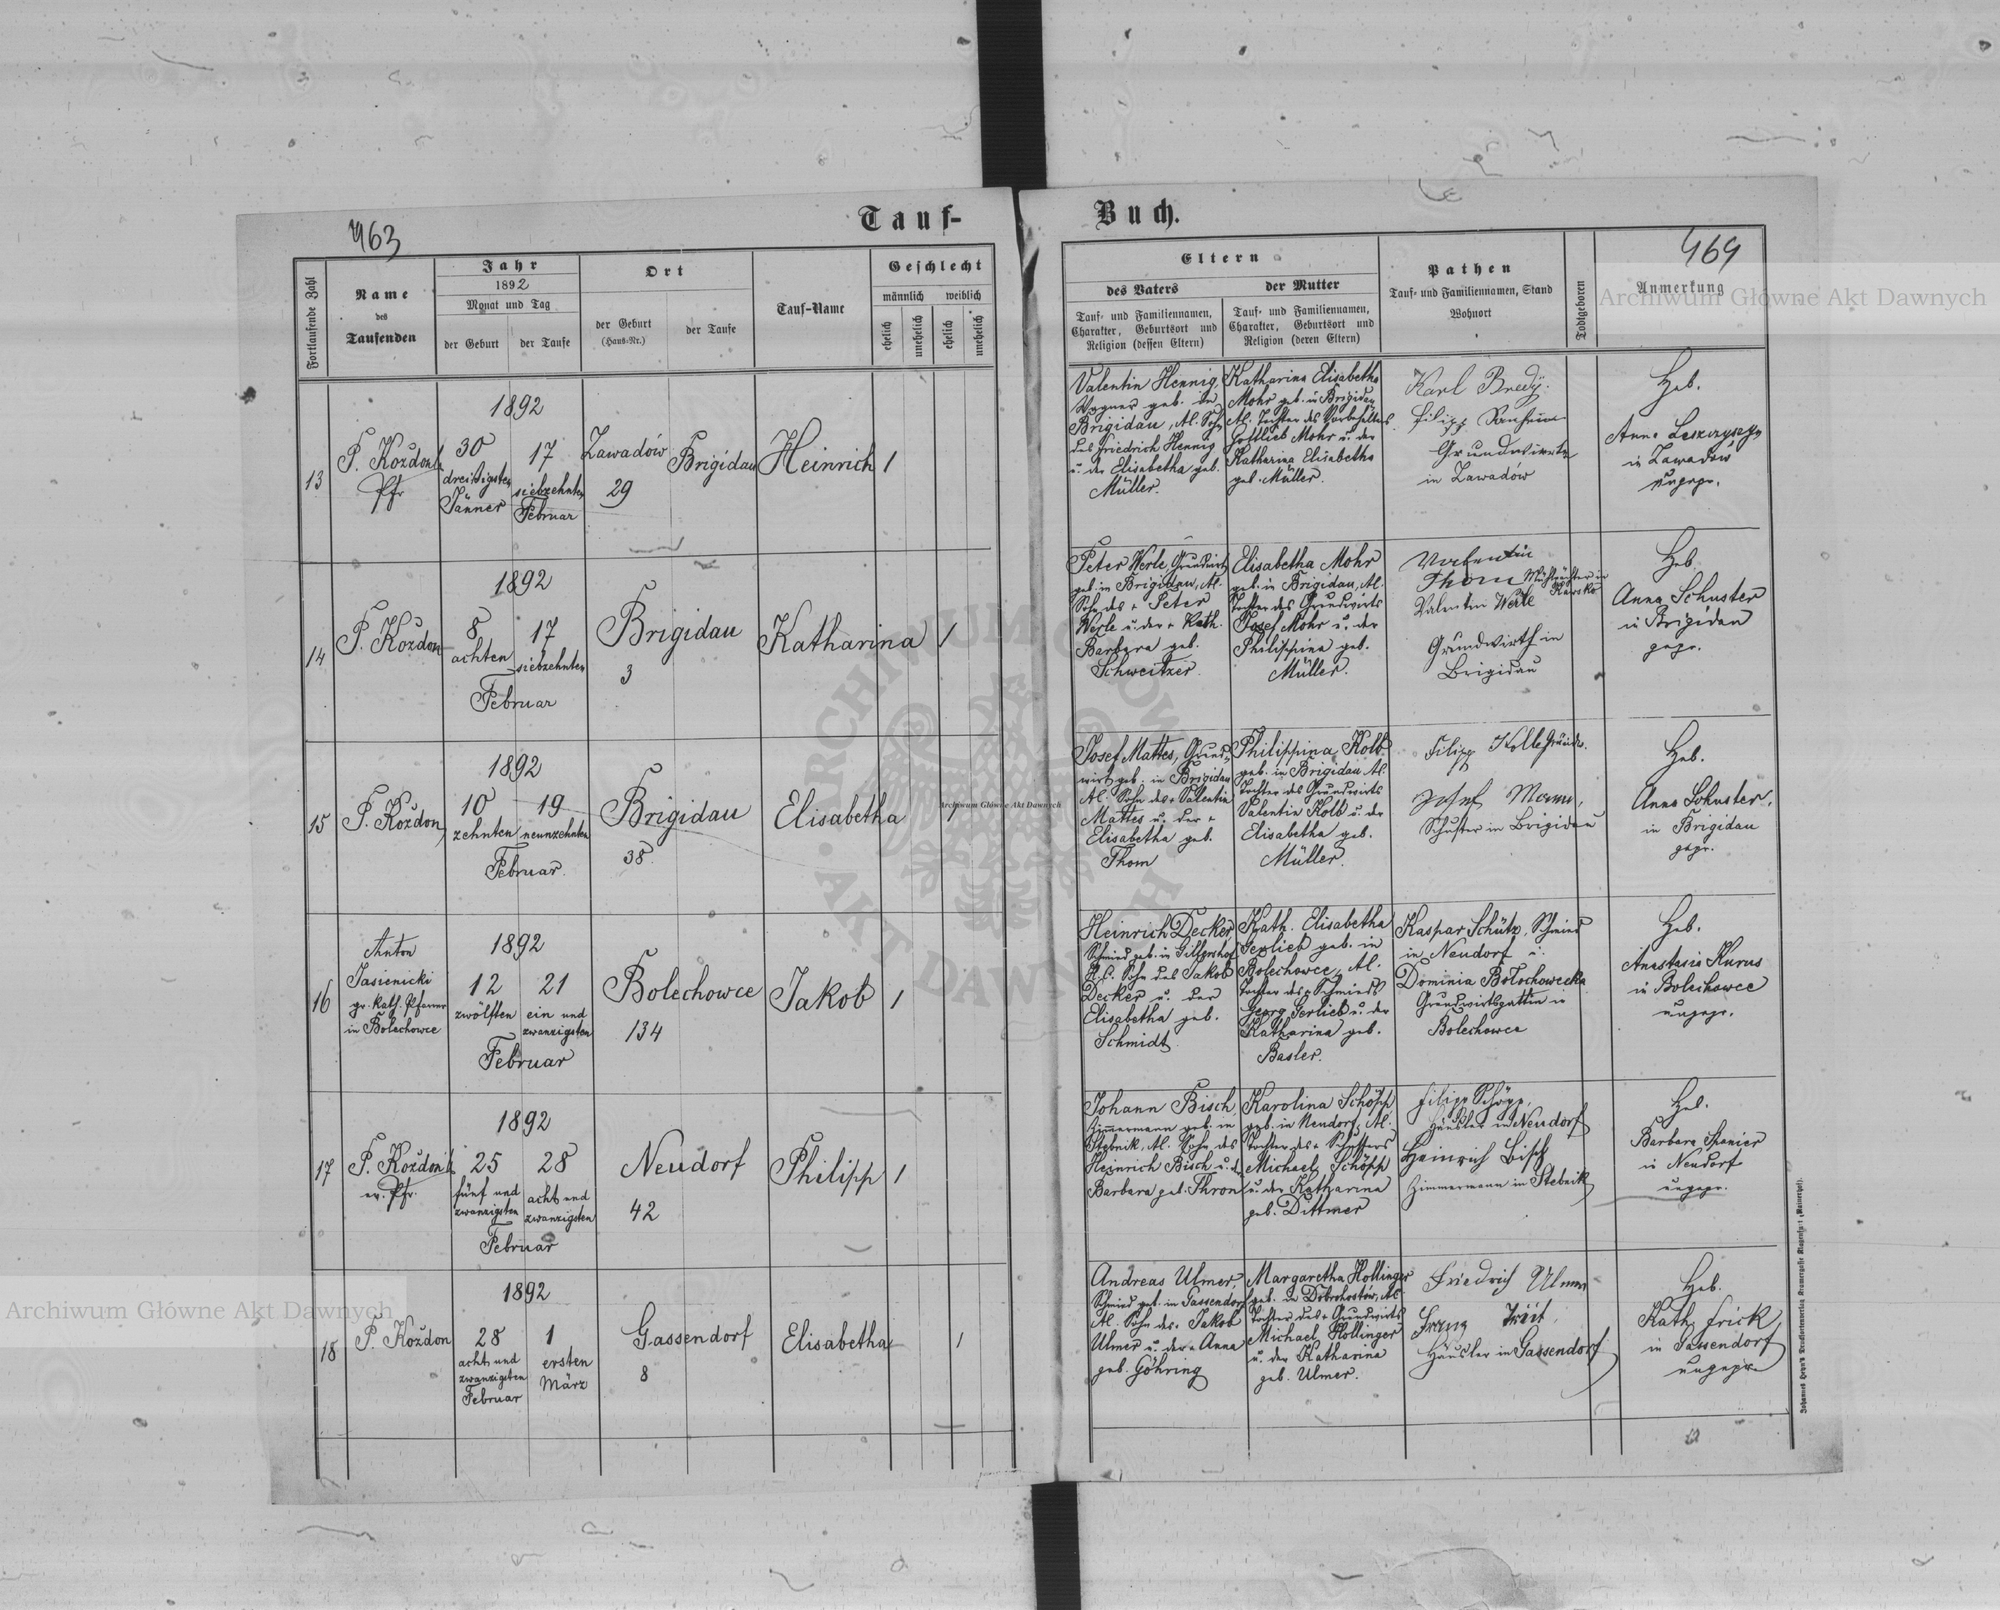 Tauf-
Buch.
463
469
Fortlaufende Zahl
Name
des
Taufenden
Jahr
1892
Monat und Tag
der Geburt
der Taufe
Ort
der Geburt
(Haus-Nr.)
der Taufe
Tauf-Name
Geschlecht
männlich
weiblich
ehelich
unehelich
ehelich
unehelich
Eltern
des Vaters
Tauf- und Familiennamen,
Charakter, Geburtsort und
Religion (dessen Eltern)
der Mutter
Tauf- und Familiennamen,
Charakter, Geburtsort und
Religion (deren Eltern)
Pathen
Tauf- und Familiennamen, Stand
Wohnort
Todtgeboren
Anmerkung
13
P. Koždon
Pfr
1892
30
dreißigsten
Jänner
17
siebzehnten
Februar
Zawadów
29
Brigidau
Heinrich
1
Valentin Hennig,
Wagner geb. in
Brigidau, Al. Sohn
des Friedrich Hennig
u. der Elisabetha geb.
Müller.
Katharina Elisabetha
Mohr geb. in Brigidau
Al. Tochter des
Gottlieb Mohr u. der
Katharina Elisabetha
geb. Müller.
Karl Bredy.
Filipp
Grundwirte
in Zawadów
Heb.
Anna
in Zawadów
ungepr.
14
P. Koždon
1892
8
achten
17
siebzehnten
Februar
Brigidau
3
Katharina
1
Peter Werle, Grundwirt
geb. in Brigidau, Al.
Sohn des + Peter
Werle u. der + Kath.
Barbara geb.
Schweitzer.
Elisabetha Mohr
geb. in Brigidau, Al.
Tochter des Grundwirts
Josef Mohr u. der
Philippina geb.
Müller.
Valentin
Thom
Valentin Werle
Grundwirth in
Brigidau
Heb.
Anna Schuster
in Brigidau
gepr.
15
P. Koždon
1892
10
zehnten
19
neunzehnten
Februar.
Brigidau
38
Elisabetha
1
Josef Mattes, Grund-
wirt geb. in Brigidau
Al. Sohn des + Valentin
Mattes u. der +
Elisabetha geb.
Thom
Philippina Kolb
geb. in Brigidau Al.
Tochter des Grundwirts
Valentin Kolb u. der
Elisabetha geb.
Müller.
Filipp
Josef
Schuster in Brigidau
Heb.
Anna Schuster,
in Brigidau
gepr.
16
Anton
Jasienicki
gr. kath. Pfarrer
in Bolechowce
1892
12
zwölften
21
ein und
zwanzigsten
Februar
Bolechowce
134
Jakob
1
Heinrich Decker
Schmied geb. in
Sohn des Jakob
Decker u. der
Elisabetha geb.
Schmidt.
Kath. Elisabetha
Gerlieb geb. in
Bolechowce, Al.
Tochter des Schmieds
Georg Gerlieb u. der
Katharina geb.
Basler.
Kaspar Schütz, Schmied
in Neudorf u.
Dominia Bolochowecka
Grundwirtsgattin in
Bolechowce
Heb.
Anastasia Kurus
in Bolechowce
ungepr.
17
P. Koždon
ev. Pfr.
1892
25
fünf und
zwanzigsten
28
acht und
zwanzigsten
Februar
Neudorf
42
Philipp
1
Johann Bisch,
Zimmermann geb. in
Stebnik, Al. Sohn des
Heinrich Bisch u. der
Barbara geb. Thron
Karolina Schöpp,
geb. in Neudorf, Al.
Tochter des + Schusters
Michael Schöpp
u. der Katharina
geb. Dittmer
Filipp Schöpp,
Häusler in Neudorf
Heinrich Bisch
Zimmermann in Stebnik
Heb.
Barbara Spanier
in Neudorf
ungepr.
18
P. Koždon
1892
28
acht und
zwanzigsten
Februar
1
ersten
März
Gassendorf
8
Elisabetha
1
Andreas Ulmer,
Schmied geb. in Gassendorf
Al. Sohn des + Jakob
Ulmer u. der + Anna
geb. Göhring
Margaretha Hollinger
geb. in Dobrohostów, Al.
Tochter des + Grundwirts
Michael Hollinger
u. der Katharina
geb. Ulmer.
Friedrich Ulmer
Franz
Häusler in Gassendorf
Heb.
Kath. Frick,
in Gassendorf
ungepr.
Archiwum Główne Akt Dawnych
Archiwum Główne Akt Dawnych
Archiwum Główne Akt Dawnych
ARCHIWUM GŁÓWNE
AKT DAWNYCH